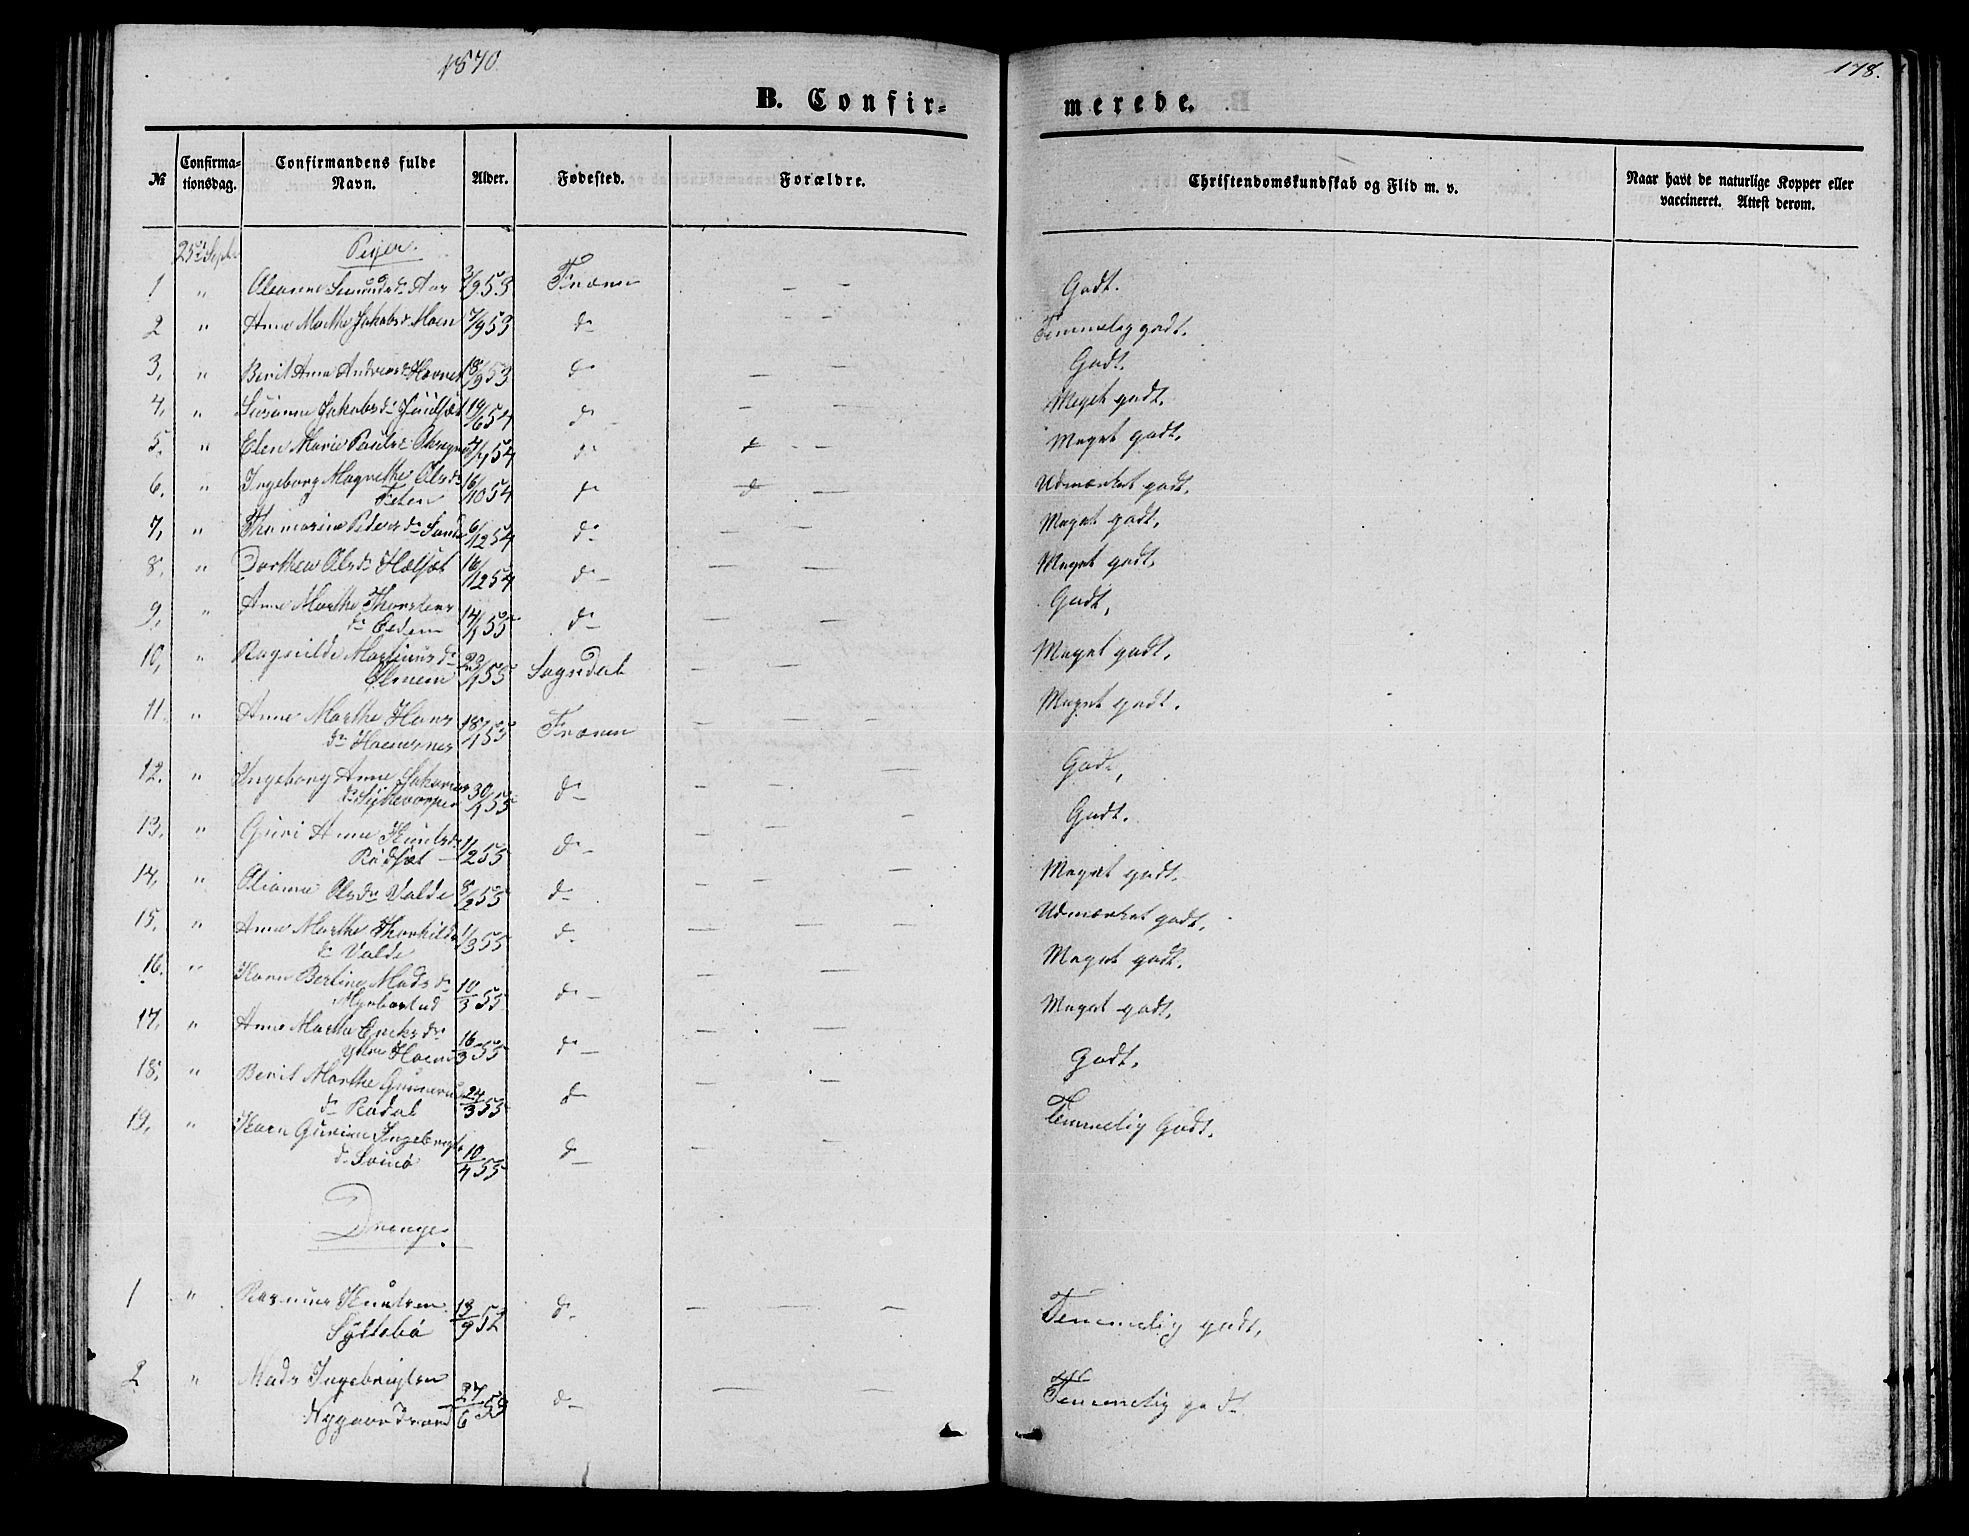 1870
178.
B. Confir-
merede.
№
Confirma-
tionsdag.
Confirmandens fulde
Navn.
Alder.
Fødested.
Forældre.
Christendomskundskab og Flid m. v.
Naar havt de naturlige Kopper eller
vaccineret. Attest derom.
25de Septbr Piger.
1 " Oleanna 3/9 53 Fræna — — Godt.
2 " Anne Marthe Jakobsdr Moen 7/9 53 do — — Temmelig godt.
3, " Berit Anna Andreasdr Havnes 18/9 53 do — — Godt.
4, " Susanne Jakobsdr 19/6 54 do — — Meget godt.
5. " Elen Marie Paulsdr 4/7 54 do — — Meget godt.
6. " Ingeborg Magrethe Olsdr
Teten 16/10 54 do — — Udmærket godt.
7, " Thomasine Pedersdr 6/12 54 do — — Meget godt.
8. " Dorthea Olsdr Hælsæt 16/12 54 do — — Meget godt.
9, " Anne Marthe Thorstens
dr Eidem 14/1 55 do — — Godt,
10, " Ragnilde Martinusdr
23/1 55 Sogndal — — Meget godt.
11. " Anne Marthe Hans
dr 18/1 55 Frænen — — — Meget godt.
12. " Ingeborg Anne
dr 30/1 55 do — — Godt,
13. " Guri Anne Knutsdr
Rødsæt 1/2 55 do — — Godt.
14, " Olianna Olsdr Valde 8/2 55 do — — — Meget godt.
15. " Anne Marthe Thorkilds
dr Valde 1/3 55 do — — Udmærket godt.
16. " Karen Bertine Madsdr
Myrbostad 10/3 55 do — — Meget godt.
17, " Anne Marthe Eriksdr
16/3 55 do — — Meget godt.
18, " Berit Marthe
dr Rødal 24/3 55 do — — Godt.
19, " Karen Gurine Ingebrigts
dr 10/4 55 do — — Temmelig Godt.
Drenge.
1 " Rasmus Knutsen
Syltebø 13/9 52 do — — — Temmelig godt,
2 " Mads Ingebrigtsen
27/6 53 do — — Temmelig godt